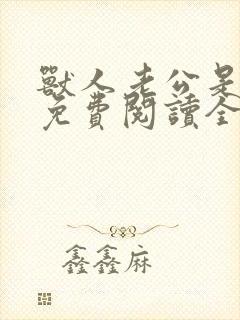 獸人老公是
免費閱讀全
鑫鑫麻